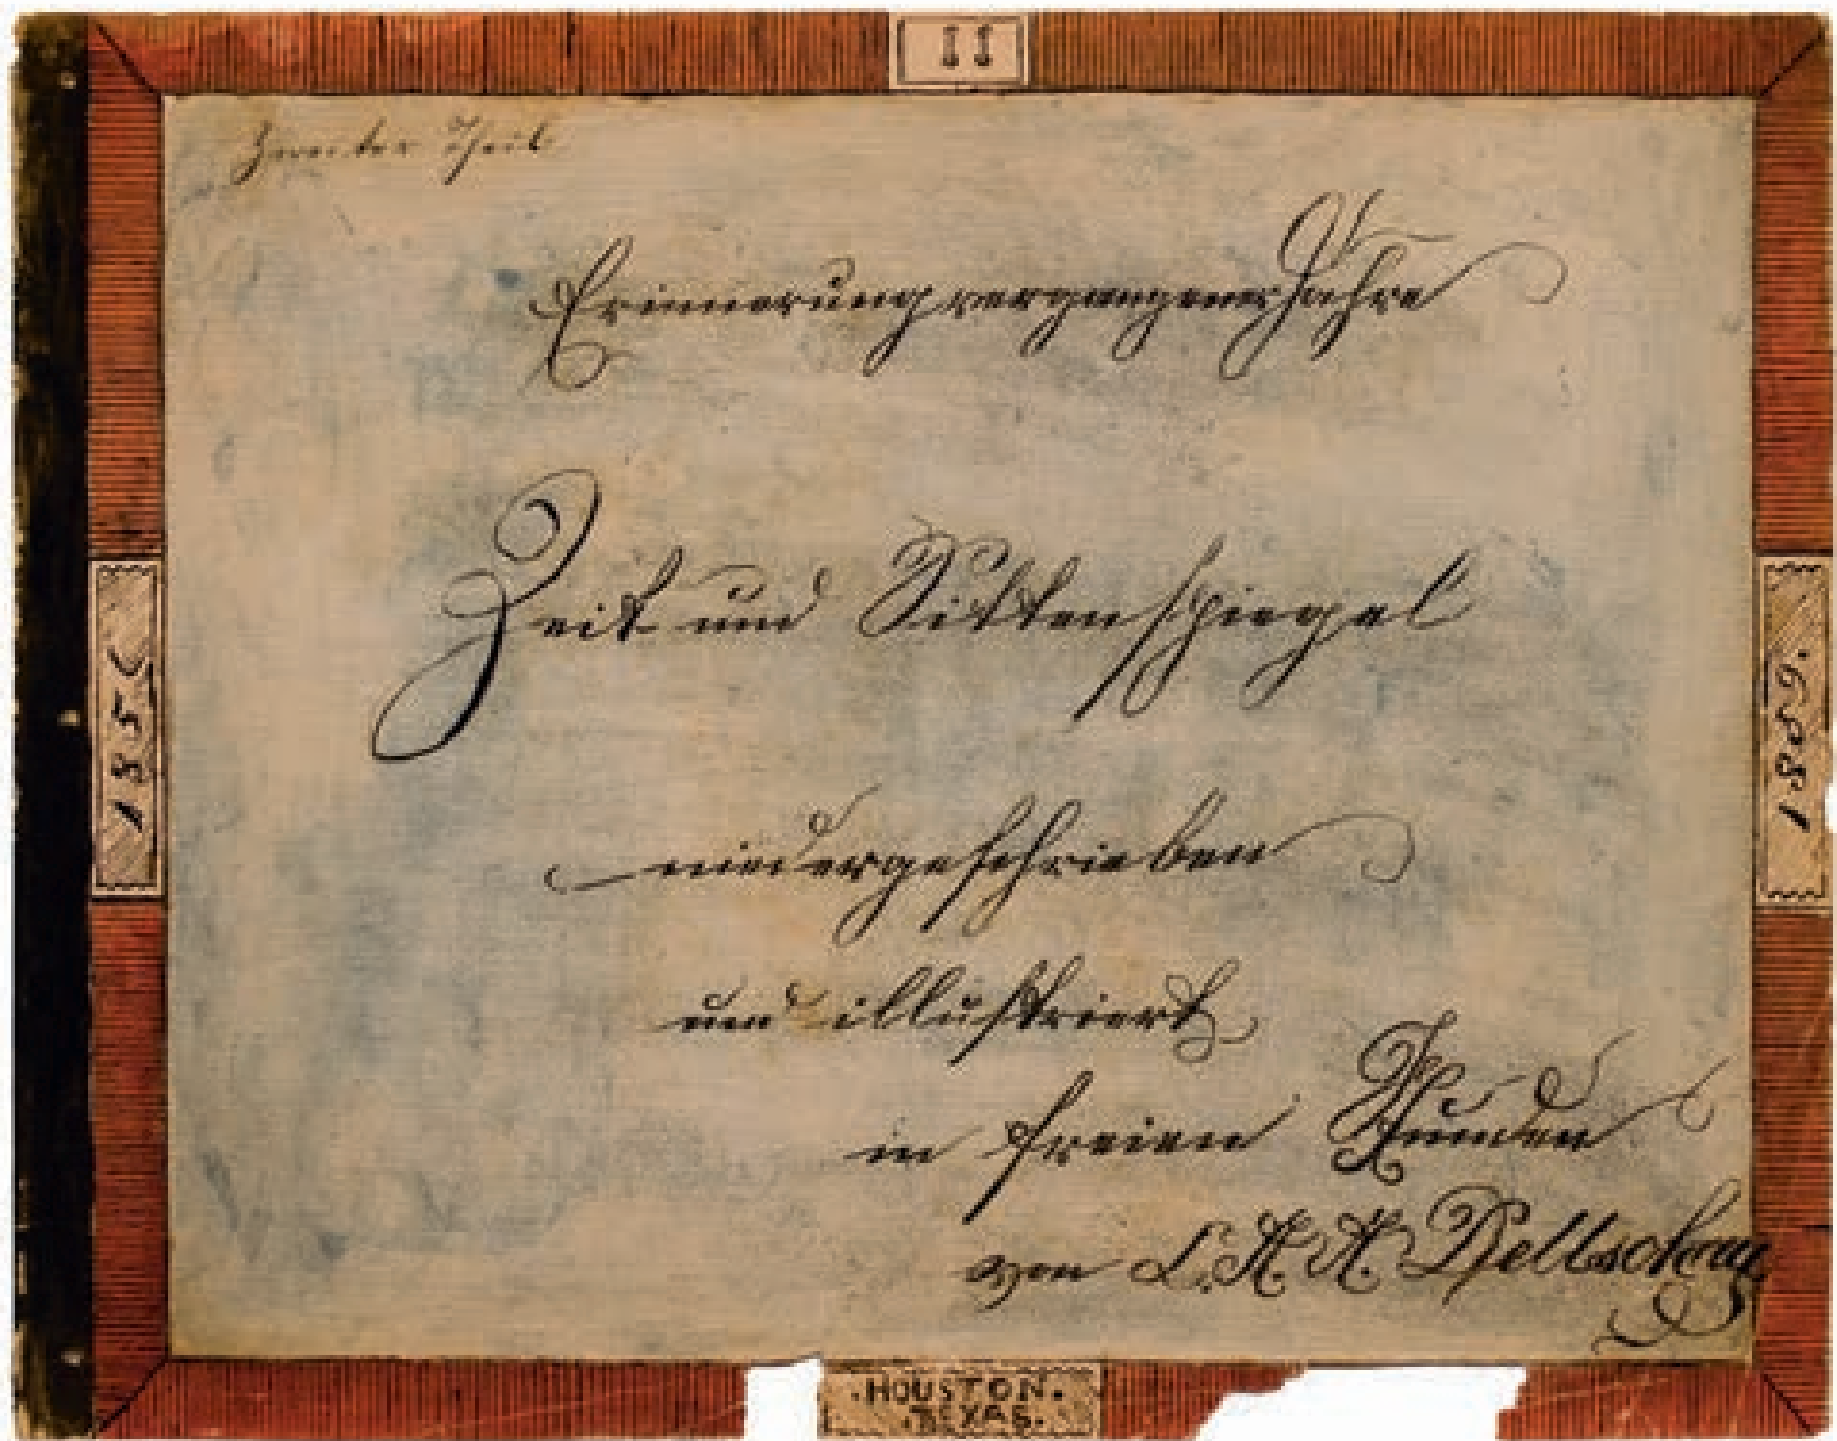 II
Zweiter Theil
Erinnerung vergangener Jahre
Zeit und Sittenspiegel
niedergeschrieben
und illustriert
in freien Stunden
von L. H. H.
185
1889.
HOUSTON.
TEXAS.